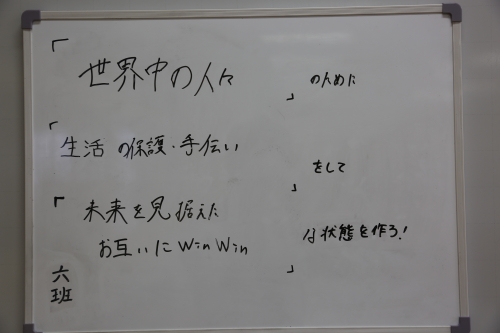 「世界中の人々」のために
「生活の保護・手伝い」をして
「未来を見据えた
お互いにWinWin」な状態を作ろう!
六班